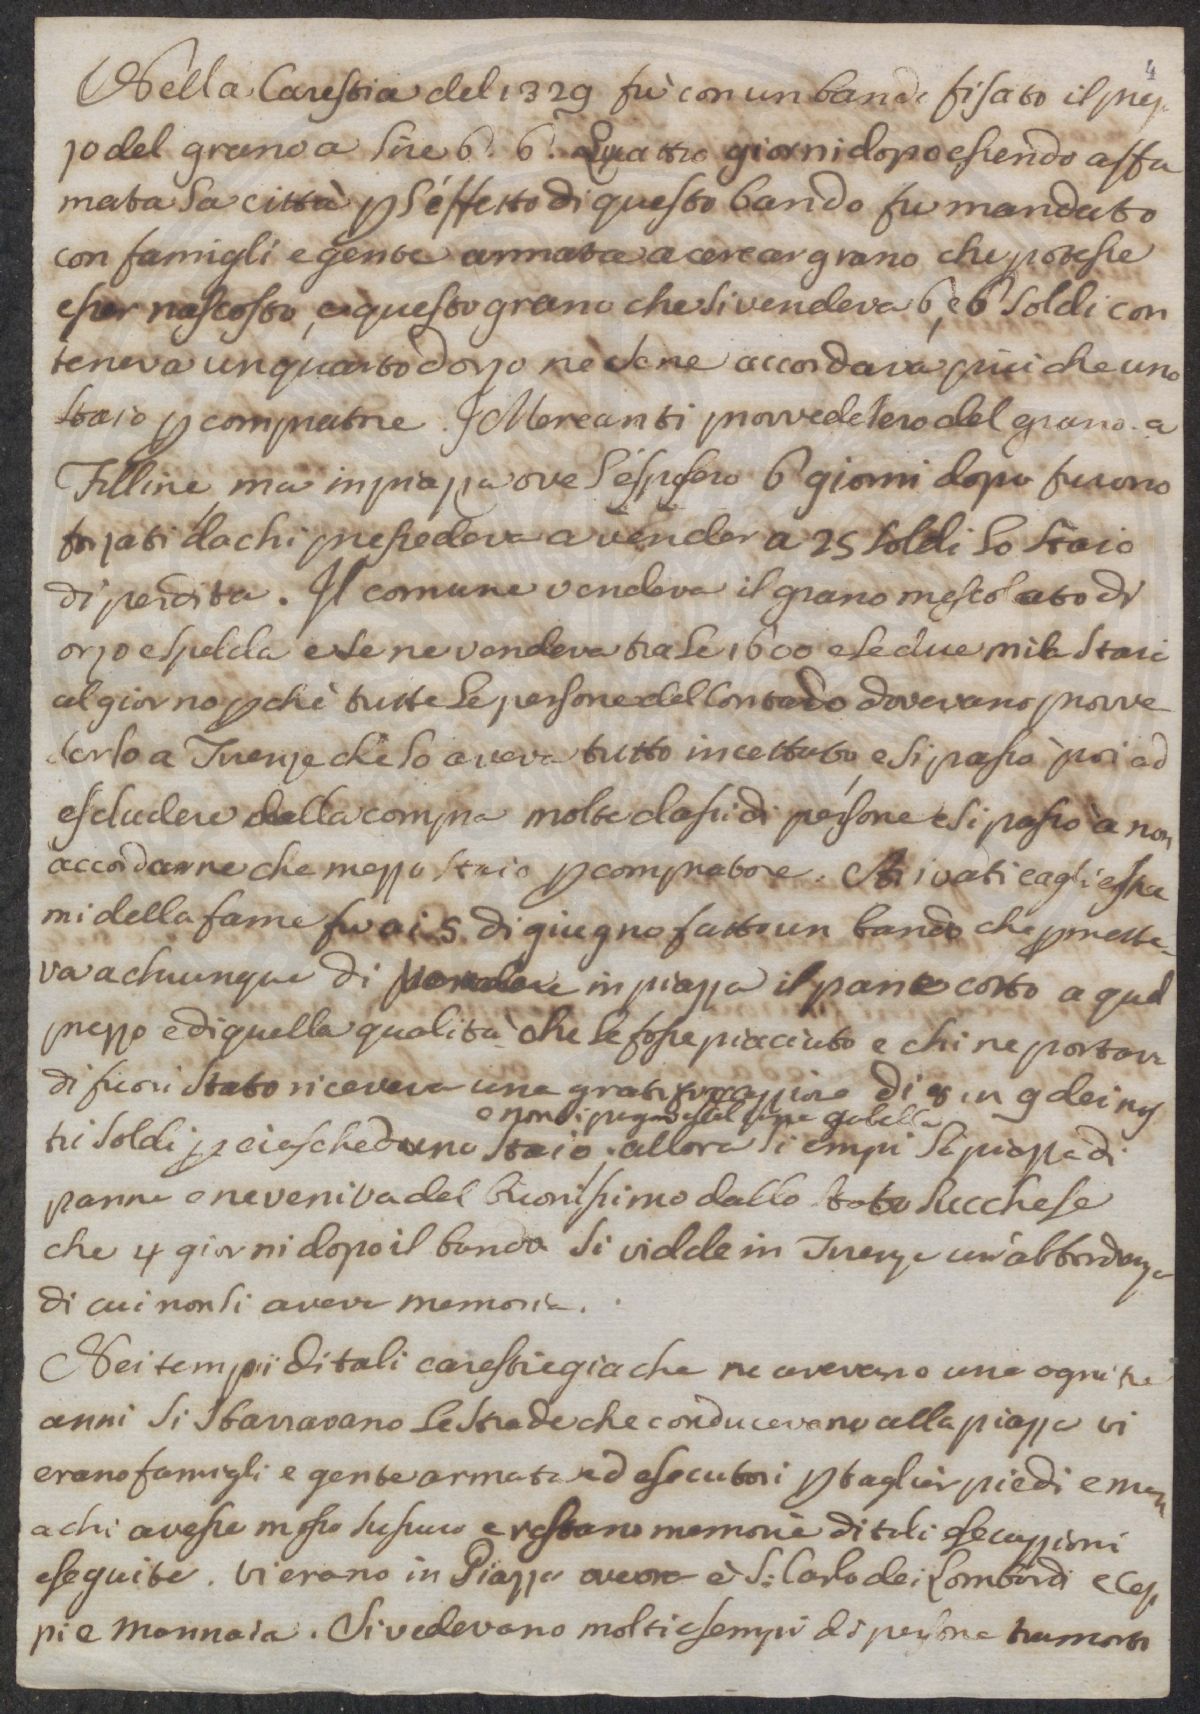 4
Nella Carestia del 1329 fù con un bando fisato il prez
zo del grano a lire 6. 6. Quattro giorni dopo essendo affa
mata la città p l'effetto di questo bando fu mandato
con famigli e gente armata a cercar grano che potesse
esser nascosto, e questo grano che si vendeva 6, e 6 soldi con
teneva un quarto d'orzo nè se ne accordava più che uno
staio p compratore. I Mercanti provvedetero del grano a
Filline ma in piazza ove l'esposero 6 giorni dopo furono
forzati da chi presiedeva a vender a 25 soldi lo staio
di perdita. Il comune vendeva il grano mescolato di
orzo e spelda e se ne vendeva tra le 1600 e le due mila staia
al giorno p chè tutte le persone del Contado dovevano provve
derlo a Firenze che lo aveva tutto incettato, e si passò poi ad
escludere dalla compra molte classi di persone e si passò a non
accordarne che mezzo staio p compratore. Arrivati cagli estre
mi della fame fu ai 5 di giugno fatto un bando che pmette
va a chiunque di vendere in piazza il pane cotto a quel
prezzo e di quella qualità che le fosse piaciuto e chi ne portava
di fuori stato riceveva una gratificazione di 8 in 9 dei nos
e non si pagava gabella
tri soldi p ciascheduno staio. allora si empì la piazza di
panne e ne veniva del buonissimo dallo stato Lucchese
che 4 giorni dopo il bando si vidde in Firenze un'abbondanza
di cui non si aveva memoria.
Nei tempi di tali carestie giache ne avevano una ogni tre
anni si sbarravano le strade che conducevano alla piazza vi
erano famigli e gente armata ed esecutori p tagliar piedi e man
a chi avesse mosso susuro e restano memorie di tali esecuzzioni
eseguite. Vi erano in Piazza ove ora è S. Carlo dei Lombardi e Cep
pi e Mannaia. Si vedevano molti esempi di persone tramorti